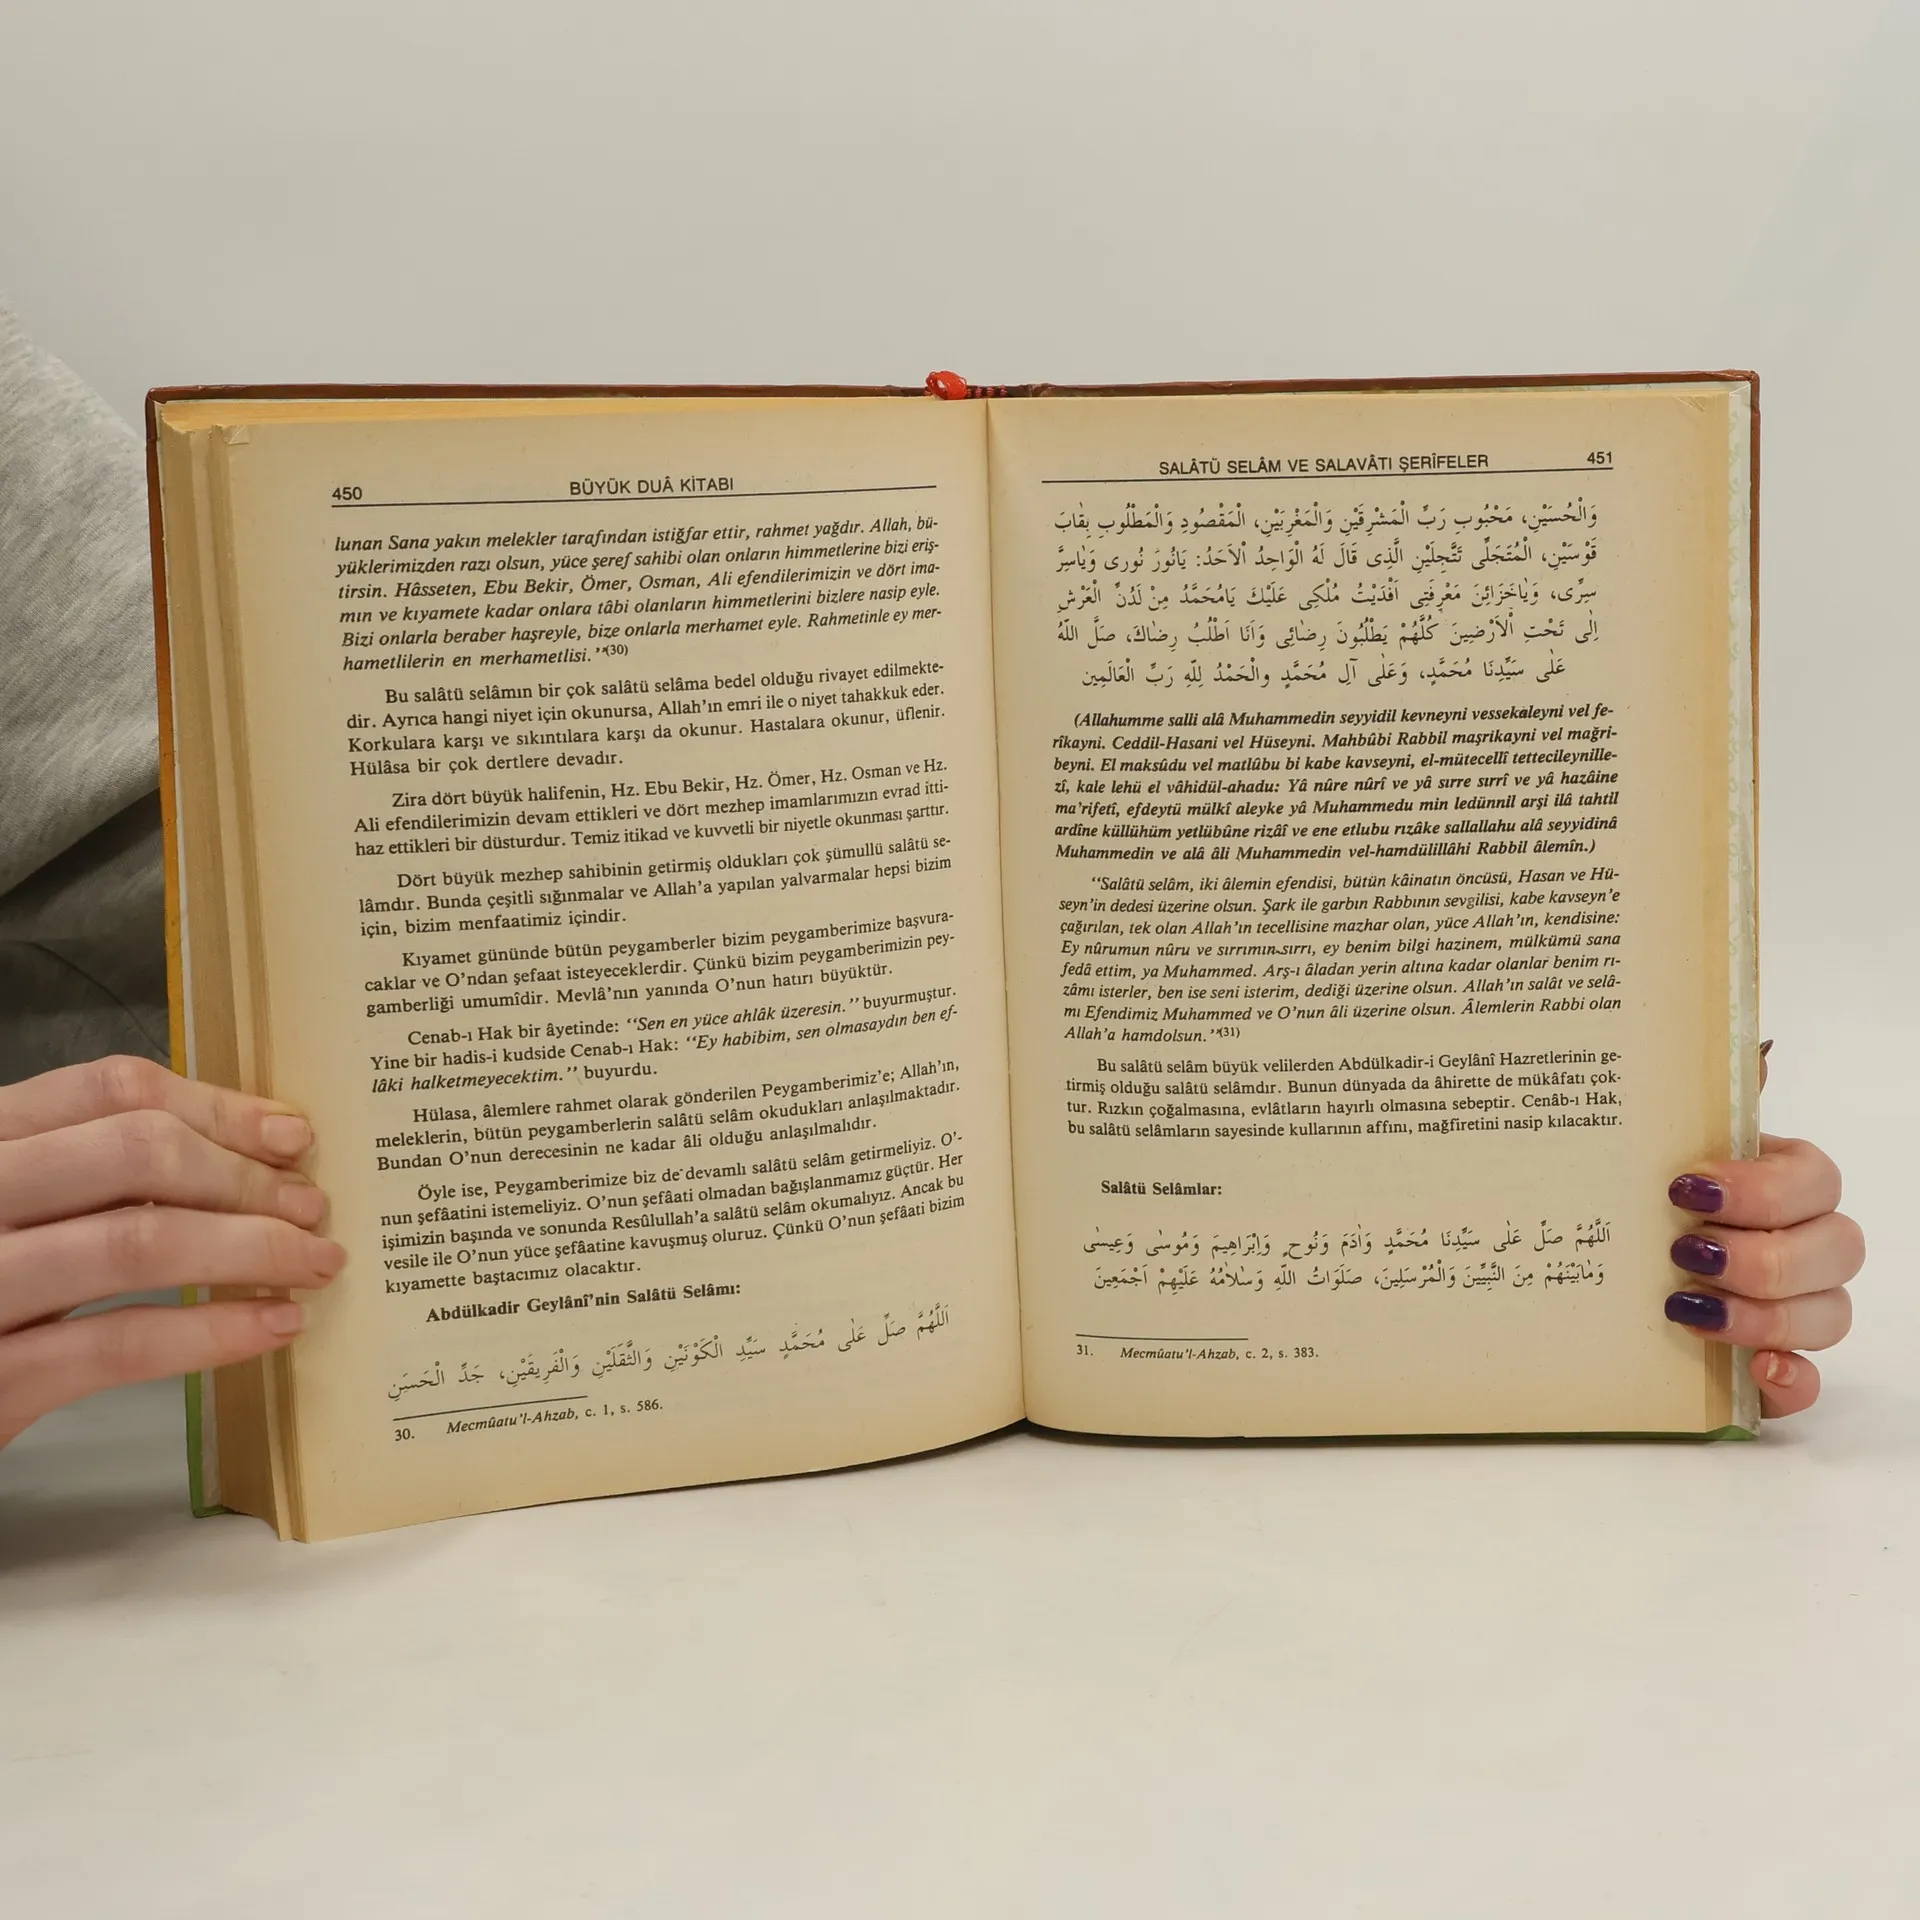 450
BÜYÜK DUÂ KİTABI
lunan Sana yakın melekler tarafından istiğfar ettir, rahmet yağdır. Allah, bü-
yüklerimizden razı olsun, yüce şeref sahibi olan onların himmetlerine bizi eriş-
tirsin. Hâsseten, Ebu Bekir, Ömer, Osman, Ali efendilerimizin ve dört ima-
mın ve kıyamete kadar onlara tâbi olanların himmetlerini bizlere nasip eyle.
Bizi onlarla beraber haşreyle, bize onlarla merhamet eyle. Rahmetinle ey mer-
hametlilerin en merhametlisi.''(30)
Bu salâtü selâmın bir çok salâtü selâma bedel olduğu rivayet edilmekte-
dir. Ayrıca hangi niyet için okunursa, Allah'ın emri ile o niyet tahakkuk eder.
Korkulara karşı ve sıkıntılara karşı da okunur. Hastalara okunur, üflenir.
Hülâsa bir çok dertlere devadır.
Zira dört büyük halifenin, Hz. Ebu Bekir, Hz. Ömer, Hz. Osman ve Hz.
Ali efendilerimizin devam ettikleri ve dört mezhep imamlarımızın evrad itti-
haz ettikleri bir düsturdur. Temiz itikad ve kuvvetli bir niyetle okunması şarttır.
Dört büyük mezhep sahibinin getirmiş oldukları çok şümullü salâtü se-
lâmdır. Bunda çeşitli sığınmalar ve Allah'a yapılan yalvarmalar hepsi bizim
için, bizim menfaatimiz içindir.
Kıyamet gününde bütün peygamberler bizim peygamberimize başvura-
caklar ve O'ndan şefaat isteyeceklerdir. Çünkü bizim peygamberimizin pey-
gamberliği umumîdir. Mevlâ'nın yanında O'nun hatırı büyüktür.
Cenab-ı Hak bir âyetinde: ''Sen en yüce ahlâk üzeresin.'' buyurmuştur.
Yine bir hadis-i kudside Cenab-ı Hak: ''Ey habibim, sen olmasaydın ben ef-
lâki halketmeyecektim.'' buyurdu.
Hülasa, âlemlere rahmet olarak gönderilen Peygamberimiz'e; Allah'ın,
meleklerin, bütün peygamberlerin salâtü selâm okudukları anlaşılmaktadır.
Bundan O'nun derecesinin ne kadar âli olduğu anlaşılmalıdır.
Öyle ise, Peygamberimize biz de devamlı salâtü selâm getirmeliyiz. O'-
nun şefâatini istemeliyiz. O'nun şefâati olmadan bağışlanmamız güçtür. Her
işimizin başında ve sonunda Resûlullah'a salâtü selâm okumalıyız. Ancak bu
vesile ile O'nun yüce şefâatine kavuşmuş oluruz. Çünkü O'nun şefâati bizim
kıyamette baştacımız olacaktır.
Abdülkadir Geylânî'nin Salâtü Selâmı:
اَللّٰهُمَّ صَلِّ عَلٰى مُحَمَّدٍ سَيِّدِ الْكَوْنَيْنِ وَالثَّقَلَيْنِ وَالْفَرِيقَيْنِ، جَدِّ الْحَسَنِ
30. Mecmûatu'l-Ahzab, c. 1, s. 586.
SALÂTÜ SELÂM VE SALAVÂTI ŞERÎFELER
451
وَالْحُسَيْنِ، مَحْبُوبِ رَبِّ الْمَشْرِقَيْنِ وَالْمَغْرِبَيْنِ، الْمَقْصُودِ وَالْمَطْلُوبِ بِقَابَ
قَوْسَيْنِ، الْمُتَجَلِّى تَتَّجِلَيْنِ الَّذِى قَالَ لَهُ الْوَاحِدُ الْاَحَدُ: يَانُورَ نُورِى وَيَاسِرَّ
سِرِّى، وَيَاخَزَائِنَ مَعْرِفَتِى اَفْدَيْتُ مُلْكِى عَلَيْكَ يَامُحَمَّدُ مِنْ لَدُنِّ الْعَرْشِ
اِلٰى تَحْتِ الْاَرْضِينَ كُلُّهُمْ يَطْلُبُونَ رِضَائِى وَاَنَا اَطْلُبُ رِضَاكَ، صَلَّ اللّٰهُ
عَلٰى سَيِّدِنَا مُحَمَّدٍ، وَعَلٰى آلِ مُحَمَّدٍ والْحَمْدُ لِلّٰهِ رَبِّ الْعَالَمِين
(Allahumme salli alâ Muhammedin seyyidil kevneyni vessekaleyni vel fe-
rîkayni. Ceddil-Hasani vel Hüseyni. Mahbûbi Rabbil maşrikayni vel mağri-
beyni. El maksûdu vel matlûbu bi kabe kavseyni, el-mütecellî tettecileynille-
zî, kale lehü el vâhidül-ahadu: Yâ nûre nûrî ve yâ sırre sırrî ve yâ hazâine
ma'rifetî, efdeytü mülkî aleyke yâ Muhammedu min ledünnil arşi ilâ tahtil
ardîne küllühüm yetlübûne rizâî ve ene etlubu rızâke sallallahu alâ seyyidinâ
Muhammedin ve alâ âli Muhammedin vel-hamdülillâhi Rabbil âlemîn.)
''Salâtü selâm, iki âlemin efendisi, bütün kâinatın öncüsü, Hasan ve Hü-
seyn'in dedesi üzerine olsun. Şark ile garbın Rabbının sevgilisi, kabe kavseyn'e
çağırılan, tek olan Allah'ın tecellisine mazhar olan, yüce Allah'ın, kendisine:
Ey nûrumun nûru ve sırrımın sırrı, ey benim bilgi hazinem, mülkümü sana
fedâ ettim, ya Muhammed. Arş-ı âladan yerin altına kadar olanlar benim rı-
zâmı isterler, ben ise seni isterim, dediği üzerine olsun. Allah'ın salât ve selâ-
mı Efendimiz Muhammed ve O'nun âli üzerine olsun. Âlemlerin Rabbi olan
Allah'a hamdolsun.''(31)
Bu salâtü selâm büyük velilerden Abdülkadir-i Geylânî Hazretlerinin ge-
tirmiş olduğu salâtü selâmdır. Bunun dünyada da âhirette de mükâfatı çok-
tur. Rızkın çoğalmasına, evlâtların hayırlı olmasına sebeptir. Cenâb-ı Hak,
bu salâtü selâmların sayesinde kullarının affını, mağfiretini nasip kılacaktır.
Salâtü Selâmlar:
اَللّٰهُمَّ صَلِّ عَلٰى سَيِّدِنَا مُحَمَّدٍ وَاٰدَمَ وَنُوحٍ وَاِبْرَاهِيمَ وَمُوسٰى وَعِيسٰى
وَمَابَيْنَهُمْ مِنَ النَّبِيِّينَ وَالْمُرْسَلِينَ، صَلَوَاتُ اللّٰهِ وَسَلَامُهُ عَلَيْهِمْ اَجْمَعِينَ
31. Mecmûatu'l-Ahzab, c. 2, s. 383.